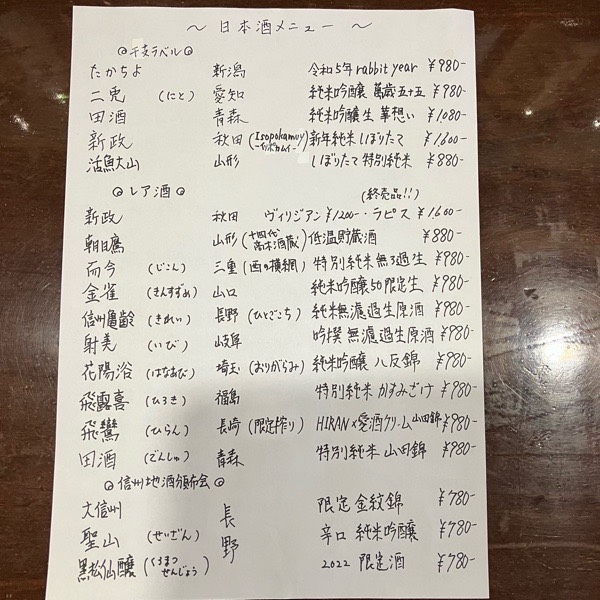 ～ 日本酒メニュー ～
◎干支ラベル◎
たかちよ 新潟 令和5年 rabbit year ¥980-
二兎 (にと) 愛知 純米吟醸 萬歳五十五 ¥980-
田酒 青森 純米吟醸生 華想い ¥1080-
新政 秋田 (Isopokamuy -イソポカムイ-) 新年純米しぼりたて ¥1,600-
活魚大山 山形 しぼりたて 特別純米 ¥880-
◎レア酒◎
(終売品!!)
新政 秋田 ヴィリジアン ¥1200-・ラピス ¥1600-
朝日鷹 山形 (十四代 高木酒蔵) 低温貯蔵酒 ¥880-
而今 (じこん) 三重 (西の横綱) 特別純米 無ろ過生 ¥980-
金雀 (きんすずめ) 山口 純米吟醸50限定生 ¥980-
信州亀齢 (きれい) 長野 (ひとごこち) 純米無濾過生原酒 ¥980-
射美 (いび) 岐阜 吟撰 無濾過生原酒 ¥980-
花陽浴 (はなあび) 埼玉 (おりがらみ) 純米吟醸 八反錦 ¥980-
飛露喜 (ひろき) 福島 特別純米 かすみざけ ¥980-
飛鸞 (ひらん) 長崎 (限定搾り) HIRAN×愛酒クリーム 山田錦 ¥980-
田酒 (でんしゅ) 青森 特別純米 山田錦 ¥980-
◎信州地酒頒布会◎
大信州 長野 限定 金紋錦 ¥780-
聖山 (せいざん) 辛口 純米吟醸 ¥780-
黒松仙醸 (くろまつせんじょう) 2022 限定酒 ¥780-